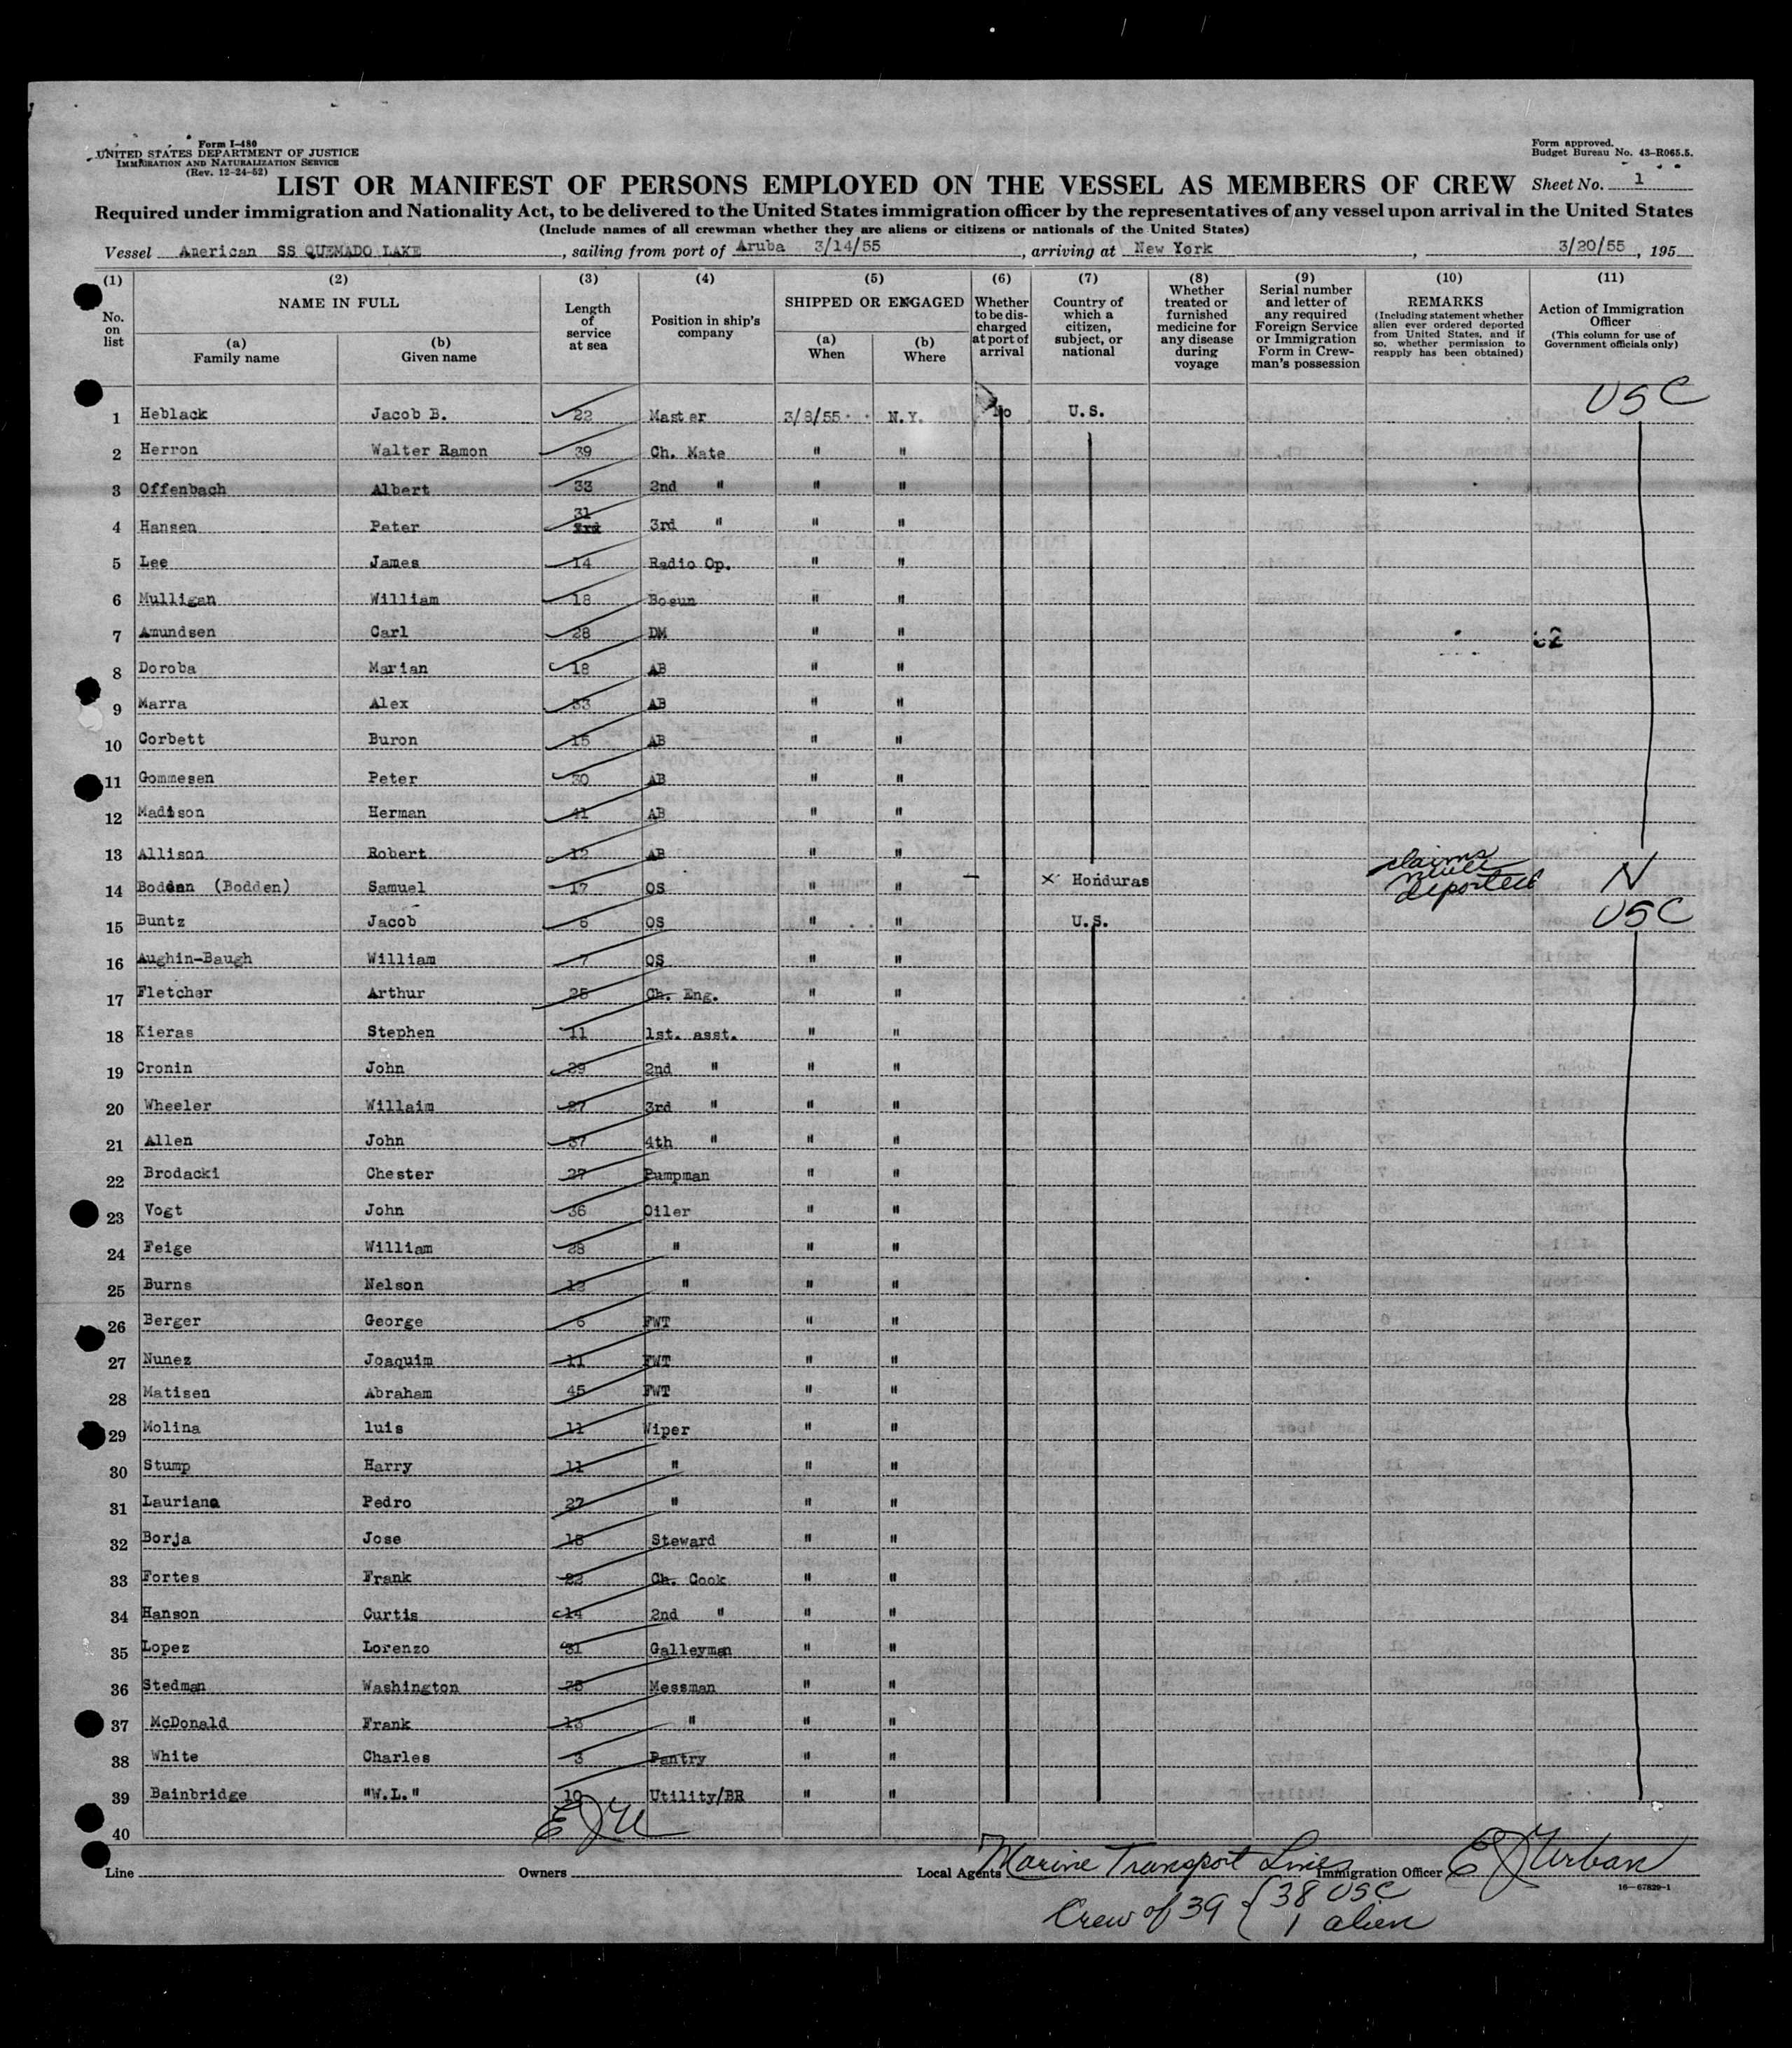 Form I-480
UNITED STATES DEPARTMENT OF JUSTICE
IMMIGRATION AND NATURALIZATION SERVICE
(Rev. 12-24-52)
Form approved.
Budget Bureau No. 43-R065.5.
LIST OR MANIFEST OF PERSONS EMPLOYED ON THE VESSEL AS MEMBERS OF CREW Sheet No. 1
Required under immigration and Nationality Act, to be delivered to the United States immigration officer by the representatives of any vessel upon arrival in the United States
(Include names of all crewman whether they are aliens or citizens or nationals of the United States)
Vessel American SS QUEMADO LAKE, sailing from port of Aruba 3/14/55, arriving at New York, 3/20/55, 195
(1) No. on list
(2) NAME IN FULL
(a) Family name
(b) Given name
(3) Length of service at sea
(4) Position in ship's company
(5) SHIPPED OR ENGAGED
(a) When
(b) Where
(6) Whether to be discharged at port of arrival
(7) Country of which a citizen, subject, or national
(8) Whether treated or furnished medicine for any disease during voyage
(9) Serial number and letter of any required Foreign Service or Immigration Form in Crewman's possession
(10) REMARKS (Including statement whether alien ever ordered deported from United States, and if so, whether permission to reapply has been obtained)
(11) Action of Immigration Officer (This column for use of Government officials only)
1 Heblack Jacob B. 22 Master 3/8/55 N.Y. No U.S. USC
2 Herron Walter Ramon 39 Ch. Mate " "
3 Offenbach Albert 33 2nd " " "
4 Hansen Peter 31 3rd 3rd " " "
5 Lee James 14 Radio Op. " "
6 Mulligan William 18 Bosun " "
7 Amundsen Carl 28 DM " "
8 Doroba Marian 18 AB " "
9 Marra Alex 33 AB " "
10 Corbett Buron 15 AB " "
11 Gommesen Peter 30 AB " "
12 Madison Herman 41 AB " "
13 Allison Robert 12 AB " "
14 Bodden (Bodden) Samuel 17 OS " " x Honduras claims never deported N
15 Buntz Jacob 6 OS " " U.S. USC
16 Aughin-Baugh William 7 OS " "
17 Fletcher Arthur 25 Ch. Eng. " "
18 Kieras Stephen 11 1st. asst. " "
19 Cronin John 29 2nd " " "
20 Wheeler Willaim 27 3rd " " "
21 Allen John 37 4th " " "
22 Brodacki Chester 27 Pumpman " "
23 Vogt John 36 Oiler " "
24 Feige William 28 " " "
25 Burns Nelson 12 " " "
26 Berger George 6 FWT " "
27 Nunez Joaquim 11 FWT " "
28 Matisen Abraham 45 FWT " "
29 Molina luis 11 Wiper " "
30 Stump Harry 11 " " "
31 Lauriana Pedro 27 " " "
32 Borja Jose 15 Steward " "
33 Fortes Frank 23 Ch. Cook " "
34 Hanson Curtis 14 2nd " " "
35 Lopez Lorenzo 31 Galleyman " "
36 Stedman Washington Messman " "
37 McDonald Frank 13 " " "
38 White Charles 3 Pantry " "
39 Bainbridge "W.L." 10 Utility/BR " "
40
EJU
Line Owners Local Agents Marine Transport Lines Immigration Officer E J Urban
16-67829-1
Crew of 39 { 38 USC
1 alien